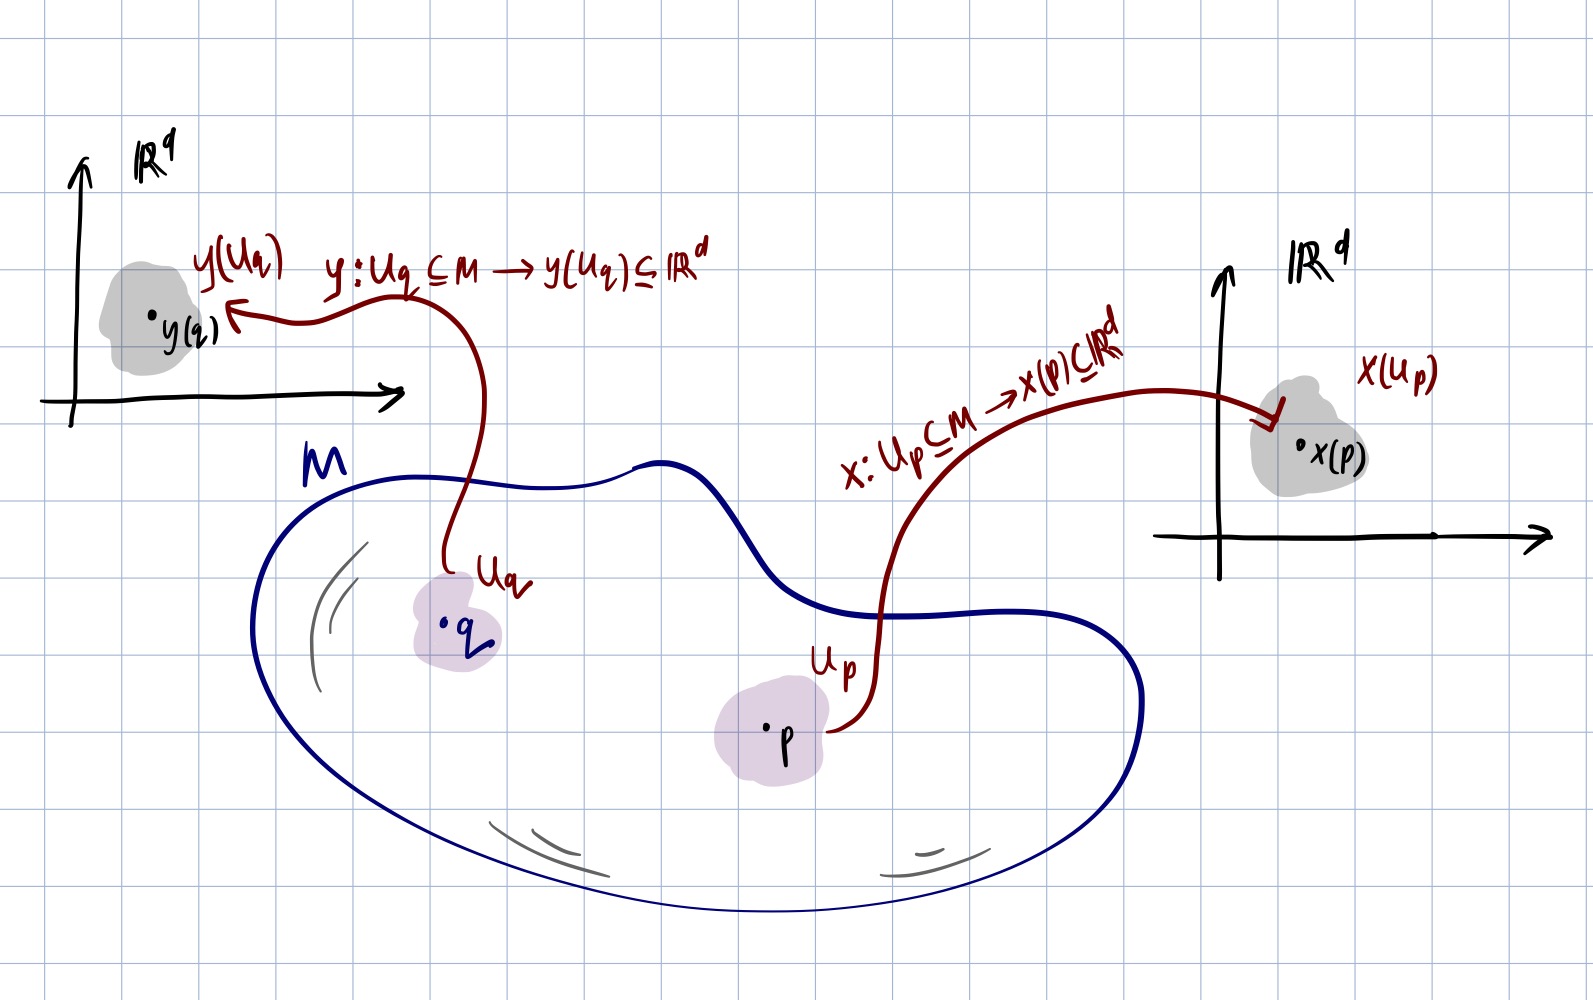 ℝᵈ
y(U_q)
y : U_q ⊆ M → y(U_q) ⊆ ℝᵈ
y(q)
ℝᵈ
x : U_p ⊆ M → x(p) ⊆ ℝᵈ
x(U_p)
x(p)
M
U_q
q
U_p
p